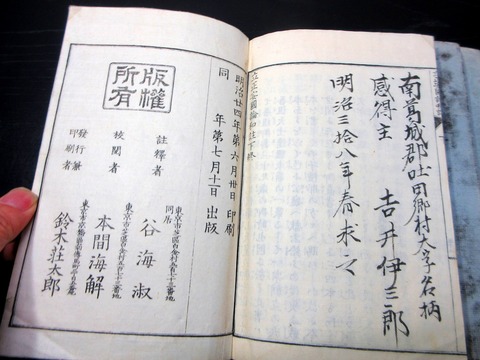 南葛城郡吐田郷村大字名柄
感得主 吉井伊三郎
明治三拾八年春求之
立正安國論和註下終
明治廿四年第六月卅日印刷
同 年第七月十一日出版
版權
所有
註釋者
東京市芝區白金村
同居
谷海淑
校閲者
本間海解
發行兼
印刷者
鈴木荘太郎